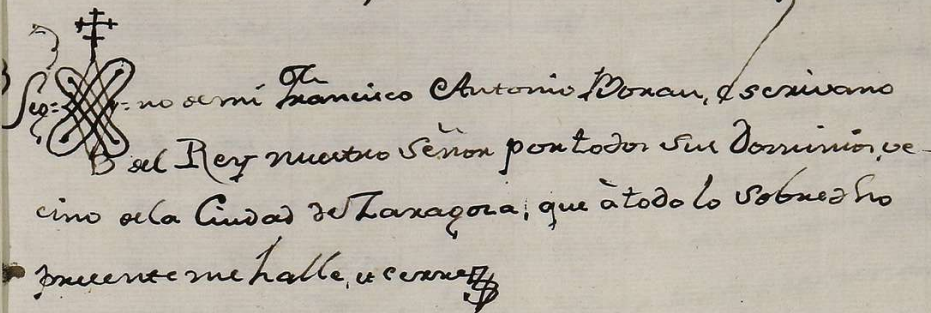 Sig= =no de mi Francisco Antonio Boran, escrivano
del Rey nuestro Señor por todos sus Dominios, ve-
cino de la Ciudad de Zaragoza, que à todo lo sobredho
presente me halle, et cerre